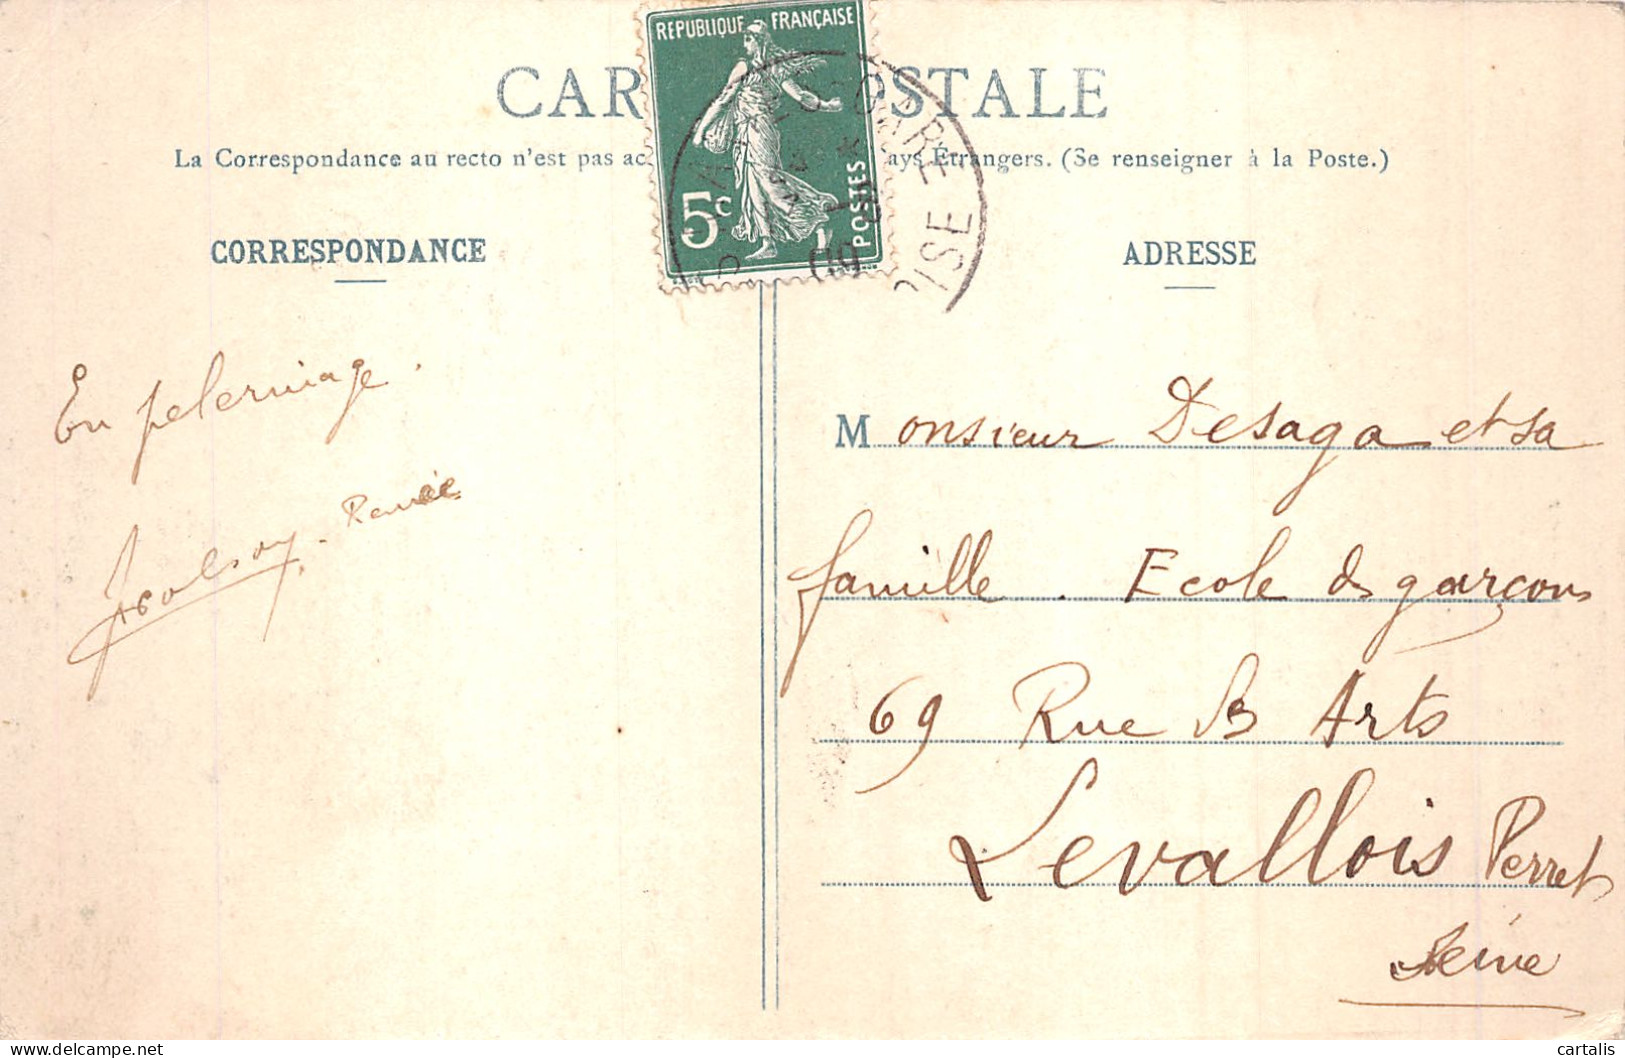 REPUBLIQUE FRANÇAISE
5c
POSTES
CAR OSTALE
GARE
OISE
09
La Correspondance au recto n'est pas ac ays Étrangers. (Se renseigner à la Poste.)
CORRESPONDANCE
En pelerinage.
Renée
ADRESSE
Monsieur Desaga et sa
famille. Ecole de garçons
69 Rue B Arts
Levallois Perret
Seine
cartalis